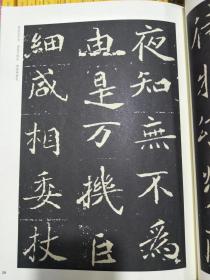 夜知無不為
由是万機巨
細咸相委杖